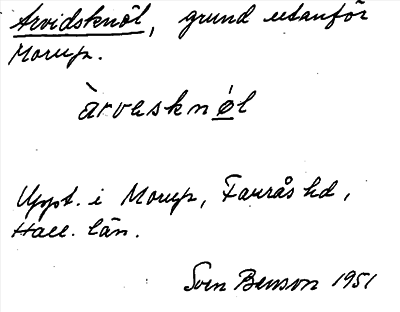 Arvidsknöl, grund utanför
Morup.
àrveskn<u>ǿ</u>l
Uppt. i Morup, Faurås hd,
Hall. län.
Sven Benson 1951